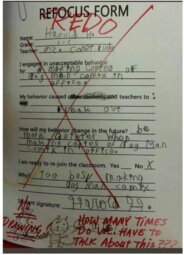 REFOCUS FORM
REDO
Name: Harold H.
Grade:
Teacher:
I engaged in unacceptable behavior
by: making copies of
dog man comix in
office
My behavior caused other students and teachers to
Freak out
How will my behavior change in the future? be
more careful when
making copies of dog Man
comix in office
I am ready to re-join the classroom. Yes No X
Why: Too busy making
dog Man comix
Student signature: Harold H.
NO
DRAWING
HOW MANY TIMES
DO WE HAVE TO
TALK ABOUT This???